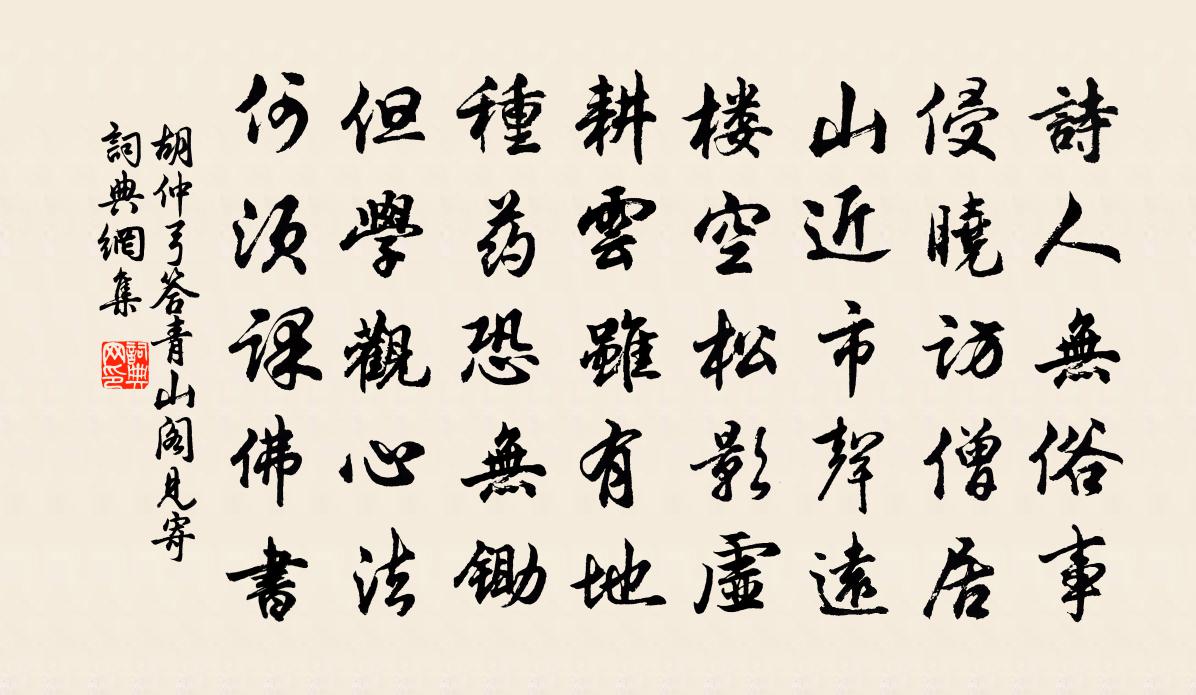 詩人無俗事
侵曉訪僧居
山近市聲遠
楼空松影虛
耕雲雖有地
種药恐無鋤
但學觀心法
何須課佛書
胡仲弓答青山阁見寄
詞典網集
詞典网印